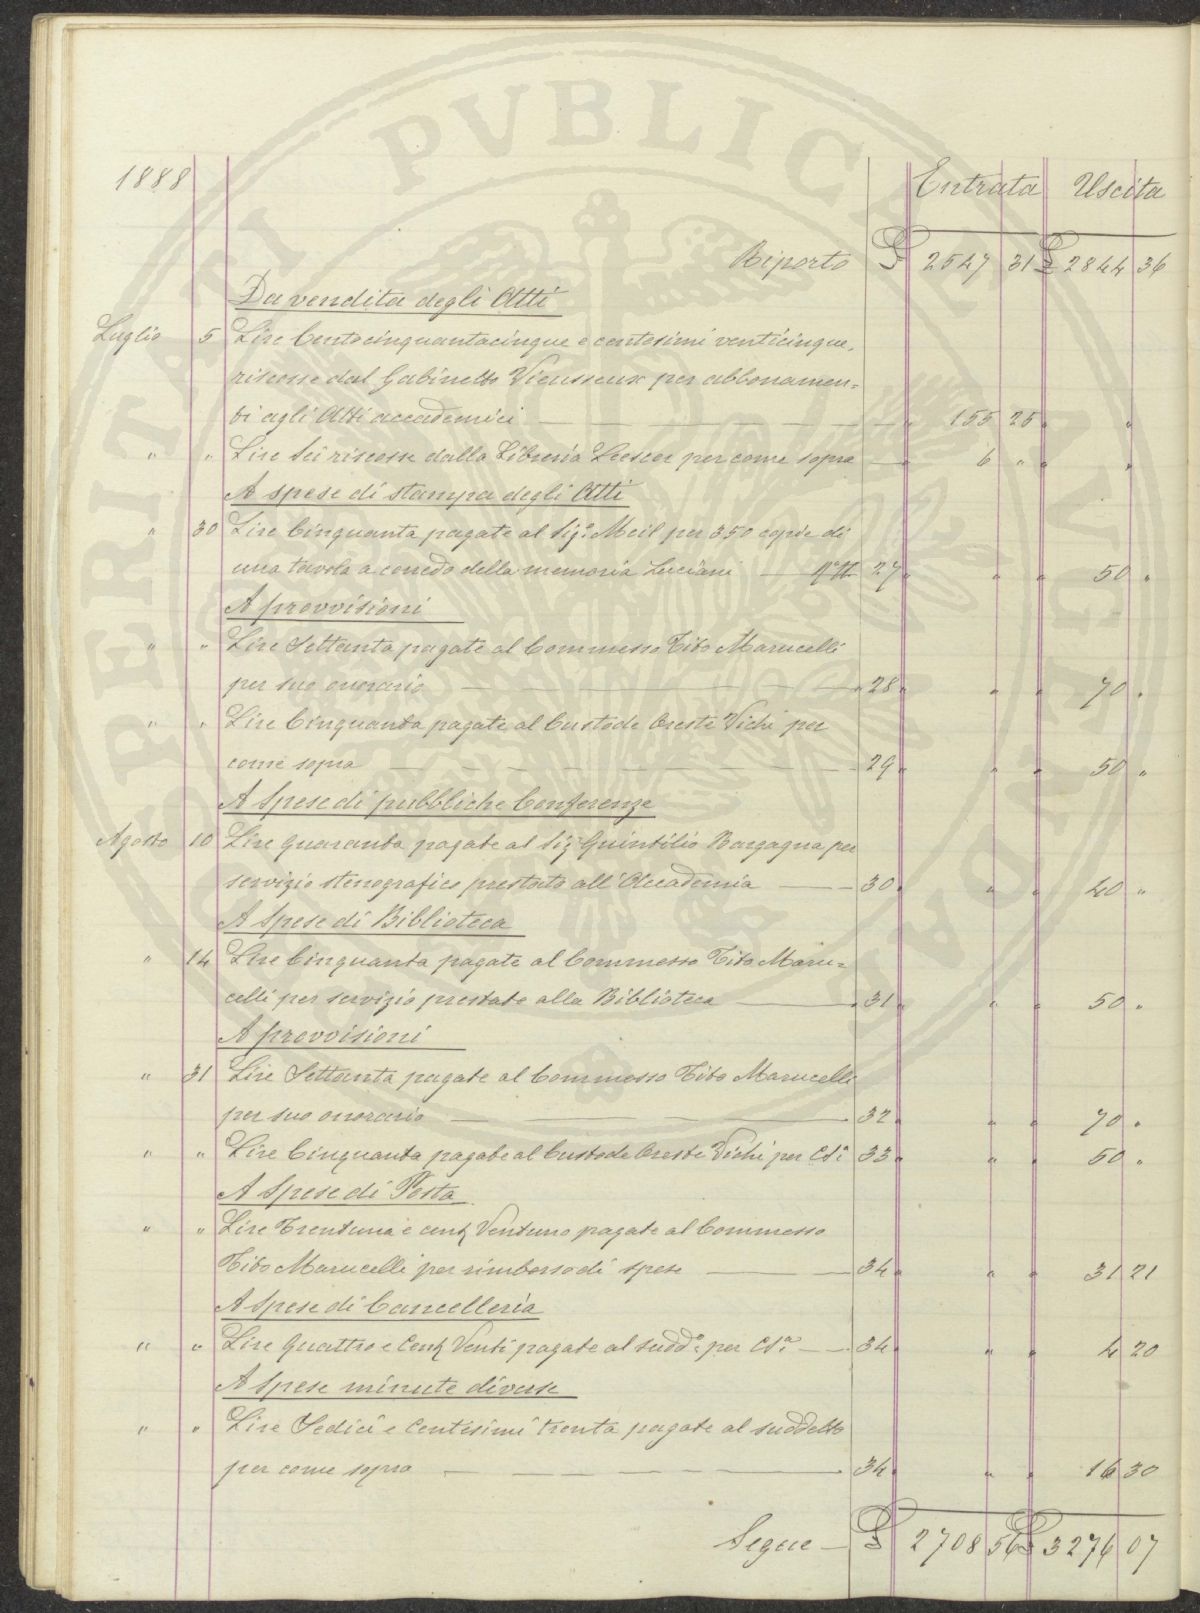 PROSPERITATI PVBLICAE AVGENDAE
1888 Entrata Uscita
Riporto £ 2547 31 £ 2844 36
Da vendita degli Atti
Luglio 5 Lire Centocinquantacinque e centesimi venticinque,
riscosse dal Gabinetto Vieusseux per abbonamen=
ti agli Atti accademici — 155 25 "
" " Lire Sei riscosse dalla Libreria Loescer per come sopra — 6 " "
A spese di stampa degli Atti
" 30 Lire Cinquanta pagate al Sig.r Meil per 350 copie di
una tavola a corredo della memoria Luciani — 27 " " 50 "
A provvisioni
" " Lire Settanta pagate al Commesso Tito Marucelli
per suo onorario — 28 " " 70 "
" " Lire Cinquanta pagate al Custode Oreste Vichi per
come sopra — 29 " " 50 "
A Spese di pubbliche Conferenze
Agosto 10 Lire Quaranta pagate al Sig.r Quintilio Bargagna per
servizio stenografico prestato all'Accademia — 30 " " 40 "
A Spese di Biblioteca
" 14 Lire Cinquanta pagate al Commesso Tito Maru=
celli per servizio prestato alla Biblioteca — 31 " " 50 "
A provvisioni
" 31 Lire Settanta pagate al Commesso Tito Marucelli
per suo onorario — 32 " " 70 "
" " Lire Cinquanta pagate al Custode Oreste Vichi per Cs.a 33 " " 50 "
A Spese di Posta
" " Lire Trentuna e cent. Ventuno pagate al Commesso
Tito Marucelli per rimborso di spese — 34 " " 31 21
A Spese di Cancelleria
" " Lire Quattro e Cent. Venti pagate al sudd.o per Cs.a — 34 " " 4 20
A Spese minute diverse
" " Lire Sedici e Centesimi trenta pagate al suddetto
per come sopra — 34 " " 16 30
Segue — £ 2708 56 £ 3276 07